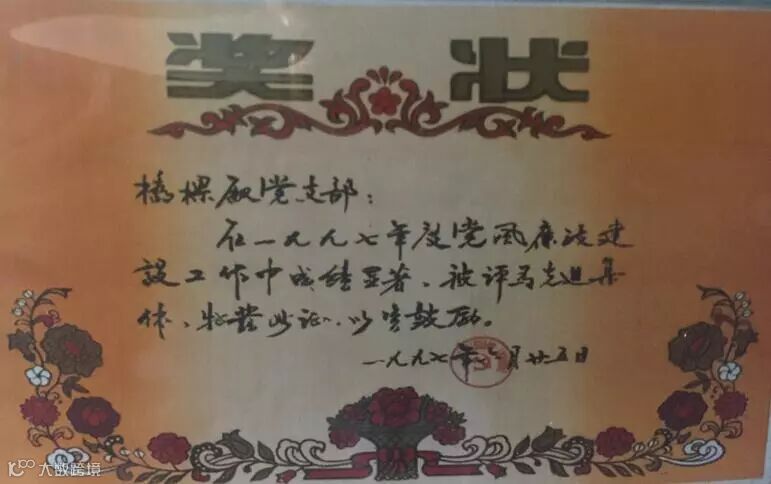 奖 状
桥梁厂党支部：
在一九九七年度党风廉政建
设工作中成绩显著、被评为先进集
体、特发此证、以资鼓励。
一九九七年 月廿五日
大数跨境